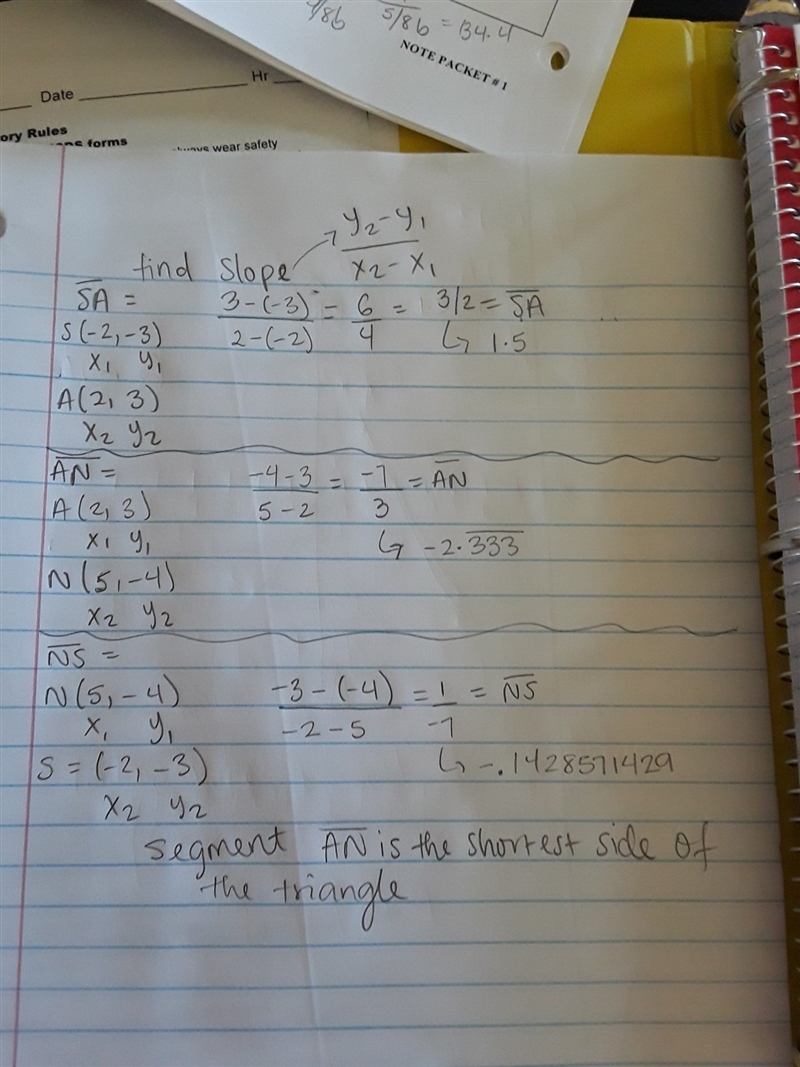 5/86 = 134.4
NOTE PACKET # 1
Date Hr
ory Rules
forms
wear safety
find Slope → y₂-y₁ / x₂-x₁
S̅A̅ =
3-(-3) / 2-(-2) = 6/4 = 3/2 = S̅A̅
S(-2,-3)
↳ 1.5
x₁ y₁
A(2, 3)
x₂ y₂
A̅N̅ =
-4-3 / 5-2 = -7/3 = A̅N̅
A(2,3)
x₁ y₁
↳ -2.3̅3̅3̅
N(5,-4)
x₂ y₂
N̅S̅ =
N(5,-4)
-3-(-4) / -2-5 = 1/-7 = N̅S̅
x₁ y₁
S = (-2,-3)
↳ -.1428571429
x₂ y₂
segment A̅N̅ is the shortest side of
the triangle